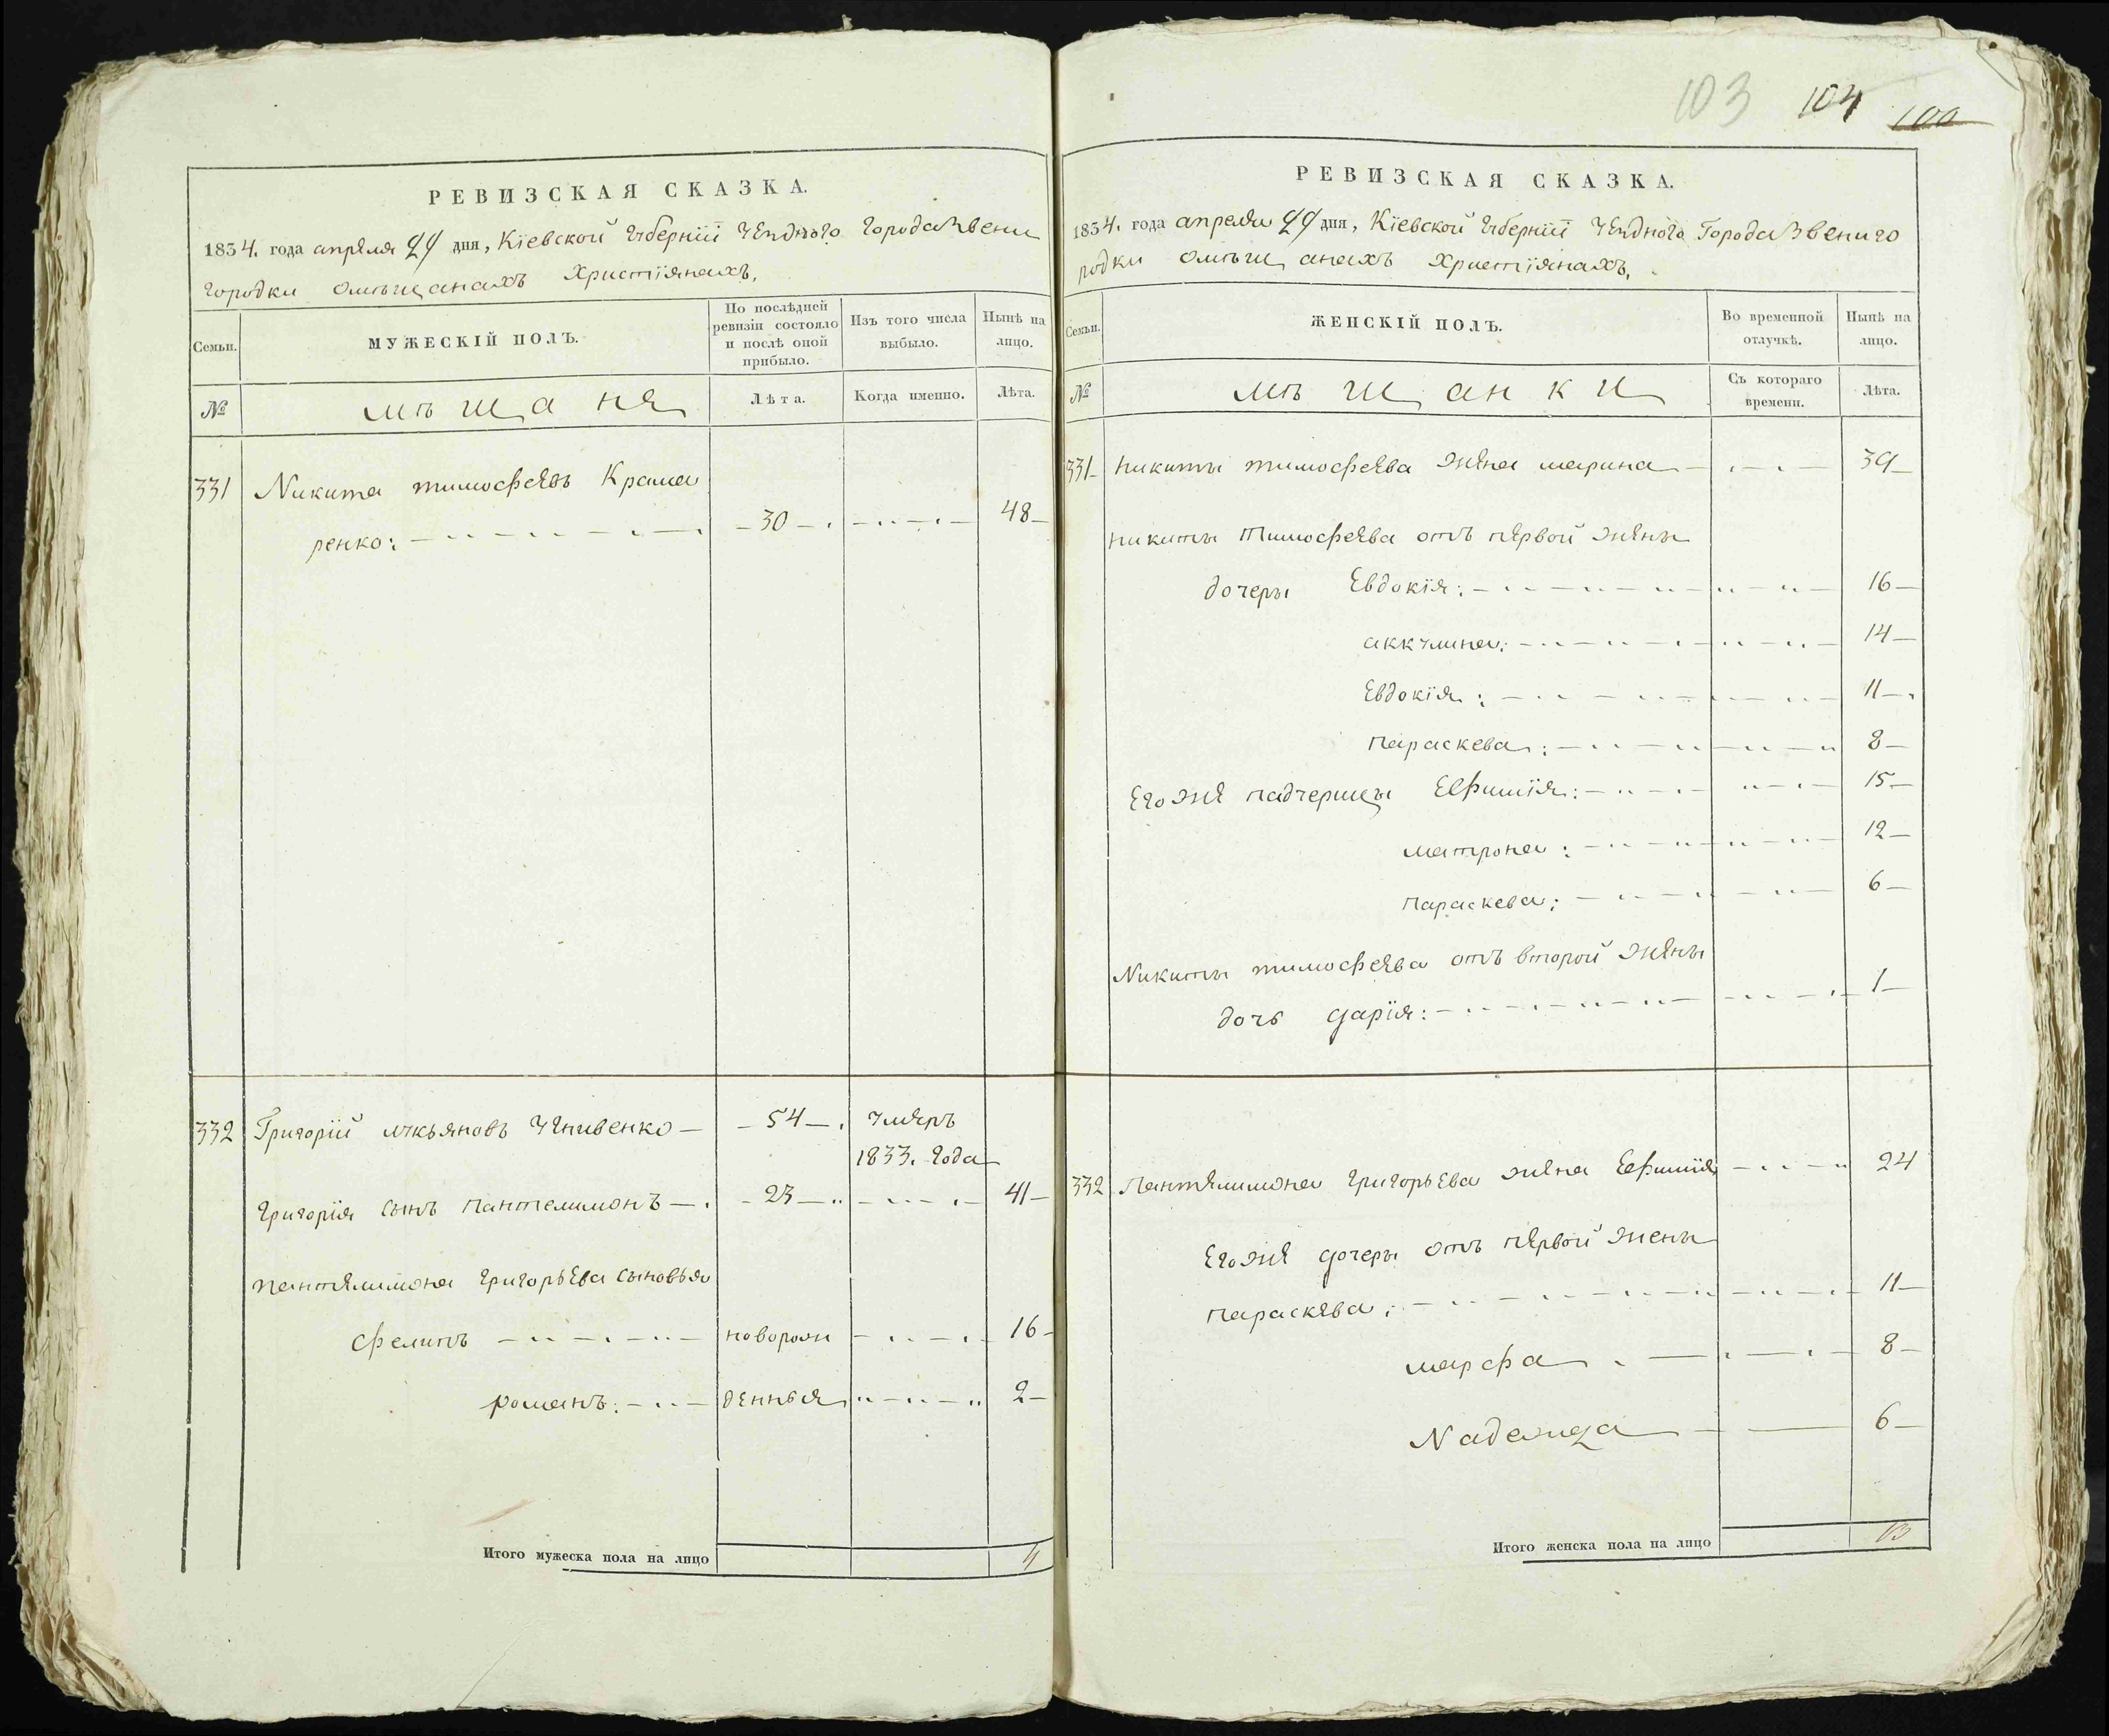 103 104 100
РЕВИЗСКАЯ СКАЗКА.
1834. года апреля дня, Кіевской Губерніи Уезднаго Города Звени
городки омѣщанахъ христіянахъ.
Семьи. МУЖЕСКІЙ ПОЛЪ. По послѣдней ревизіи состояло и послѣ оной прибыло. Изъ того числа выбыло. Нынѣ на лицо.
№ мѣщаня Лѣта. Когда именно. Лѣта.
331 Никита тимофеевъ Крама
ренко: 30 48
332 Григорій лукьяновъ 54 умеръ
1833. года
григорія сынъ пантелимонъ 23 41
пантелимона григорьева сыновья
филипъ новорож 16
романъ: денныя 2
Итого мужеска пола на лицо 4
РЕВИЗСКАЯ СКАЗКА.
1834. года апреля дня, Кіевской Губерніи Уезднаго Города Звениго
родки омѣщанахъ христіянахъ.
Семьи. ЖЕНСКІЙ ПОЛЪ. Во временной отлучкѣ. Нынѣ на лицо.
№ мѣщанки Съ котораго времени. Лѣта.
331 Никиты тимофеева жена марина 39
никиты Тимофеева отъ первой жены
дочеры Евдокія: 16
аккулина: 14
Евдокія: 11
параскева: 8
Его же падчерицы Евфимія: 15
матрона: 12
параскева: 6
Никиты тимофеева отъ второй жены
дочь дарія: 1
332 Пантелимона григорьева жена Евфимія 24
Его же дочеры отъ первой жены
параскева: 11
марфа 8
Надежда 6
Итого женска пола на лицо 13